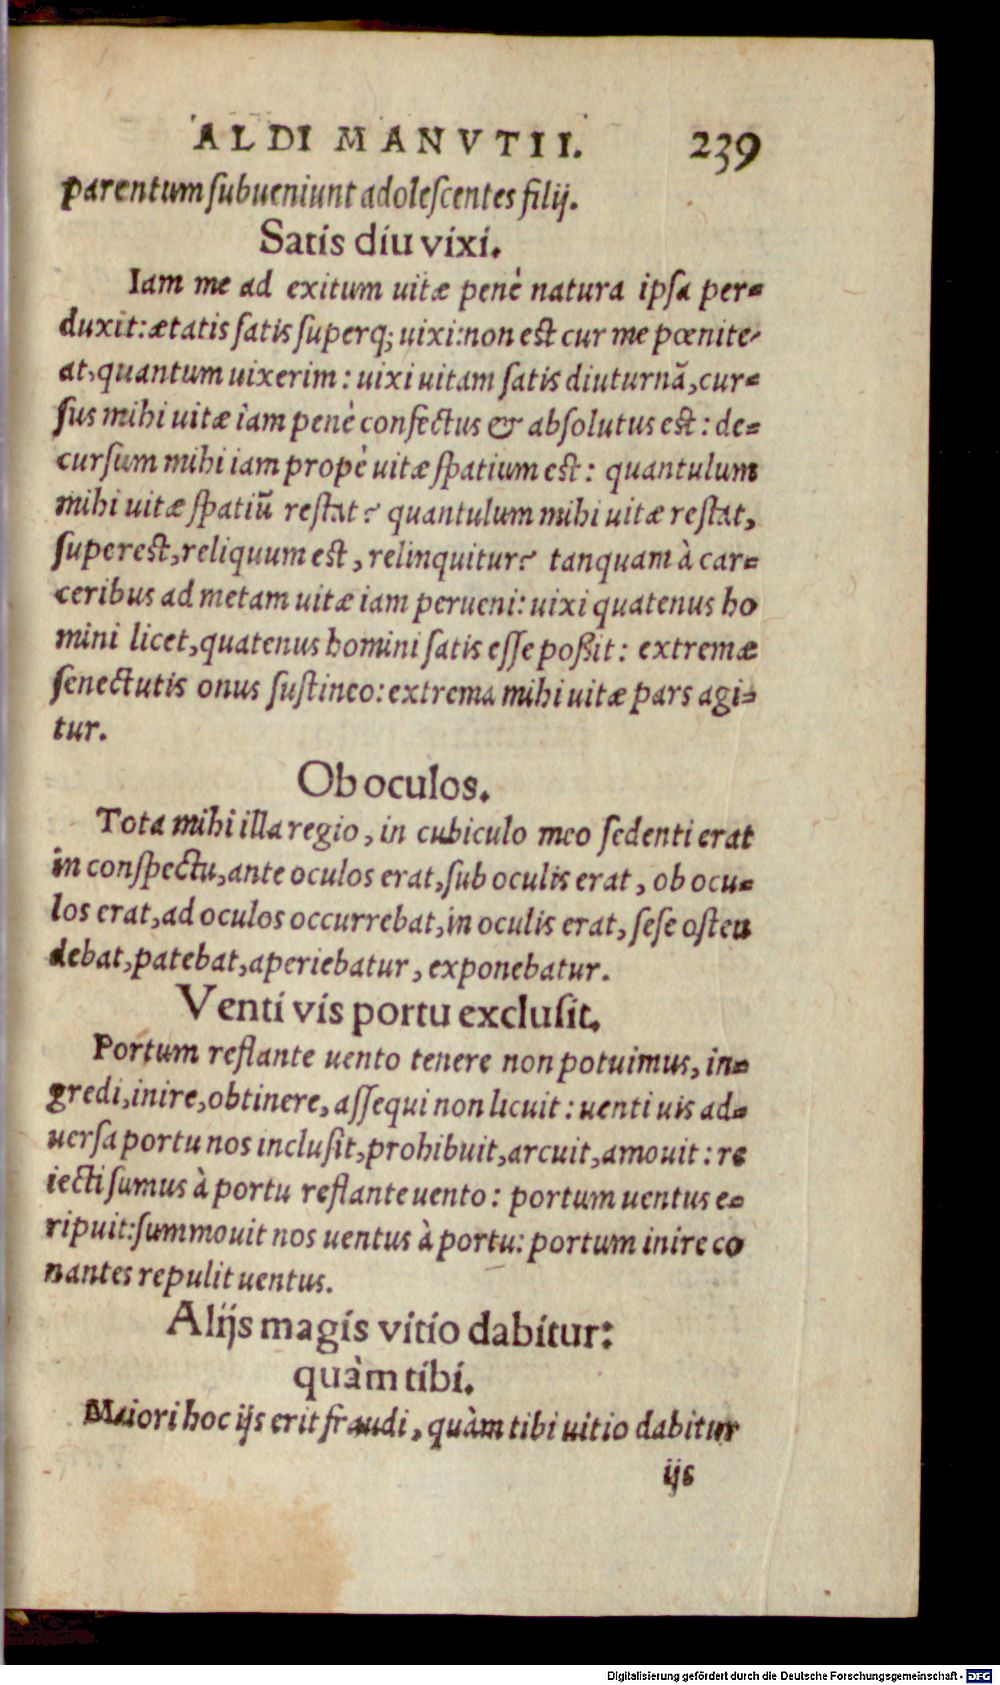 ALDI MANVTII. 239
parentum ſubueniunt adoleſcentes filij.
Satis diu vixi.
Iam me ad exitum uitæ penè natura ipſa per=
duxit: ætatis ſatis ſuperq; uixi: non eſt cur me pœnite-
at, quantum uixerim: uixi uitam ſatis diuturnã, cur=
ſus mihi uitæ iàm penè confectus & abſolutus eſt: de=
curſum mihi iam propè uitæ ſpatium eſt: quantulum
mihi uitæ ſpatiũ reſtat? quantulum mihi uitæ reſtat,
ſupereſt, reliquum eſt, relinquitur? tanquam à car=
ceribus ad metam uitæ iam perueni: uixi quatenus ho
mini licet, quatenus homini ſatis eſſe poßit: extremæ
ſenectutis onus ſuſtineo: extrema mihi uitæ pars agi=
tur.
Ob oculos.
Tota mihi illa regio, in cubiculo meo ſedenti erat
in conſpectu, ante oculos erat, ſub oculis erat, ob ocu=
los erat, ad oculos occurrebat, in oculis erat, ſeſe oſten
debat, patebat, aperiebatur, exponebatur.
Venti vis portu excluſit.
Portum reflante uento tenere non potuimus, in=
gredi, inire, obtinere, aſſequi non licuit: uenti uis ad=
uerſa portu nos incluſit, prohibuit, arcuit, amouit: re
iecti ſumus à portu reflante uento: portum uentus e=
ripuit: ſummouit nos uentus à portu: portum inire co
nantes repulit uentus.
Alijs magis vitio dabitur:
quàm tibi.
Maiori hoc ijs erit fraudi, quàm tibi uitio dabitur
ijs
Digitalisierung gefördert durch die Deutsche Forschungsgemeinschaft - DFG